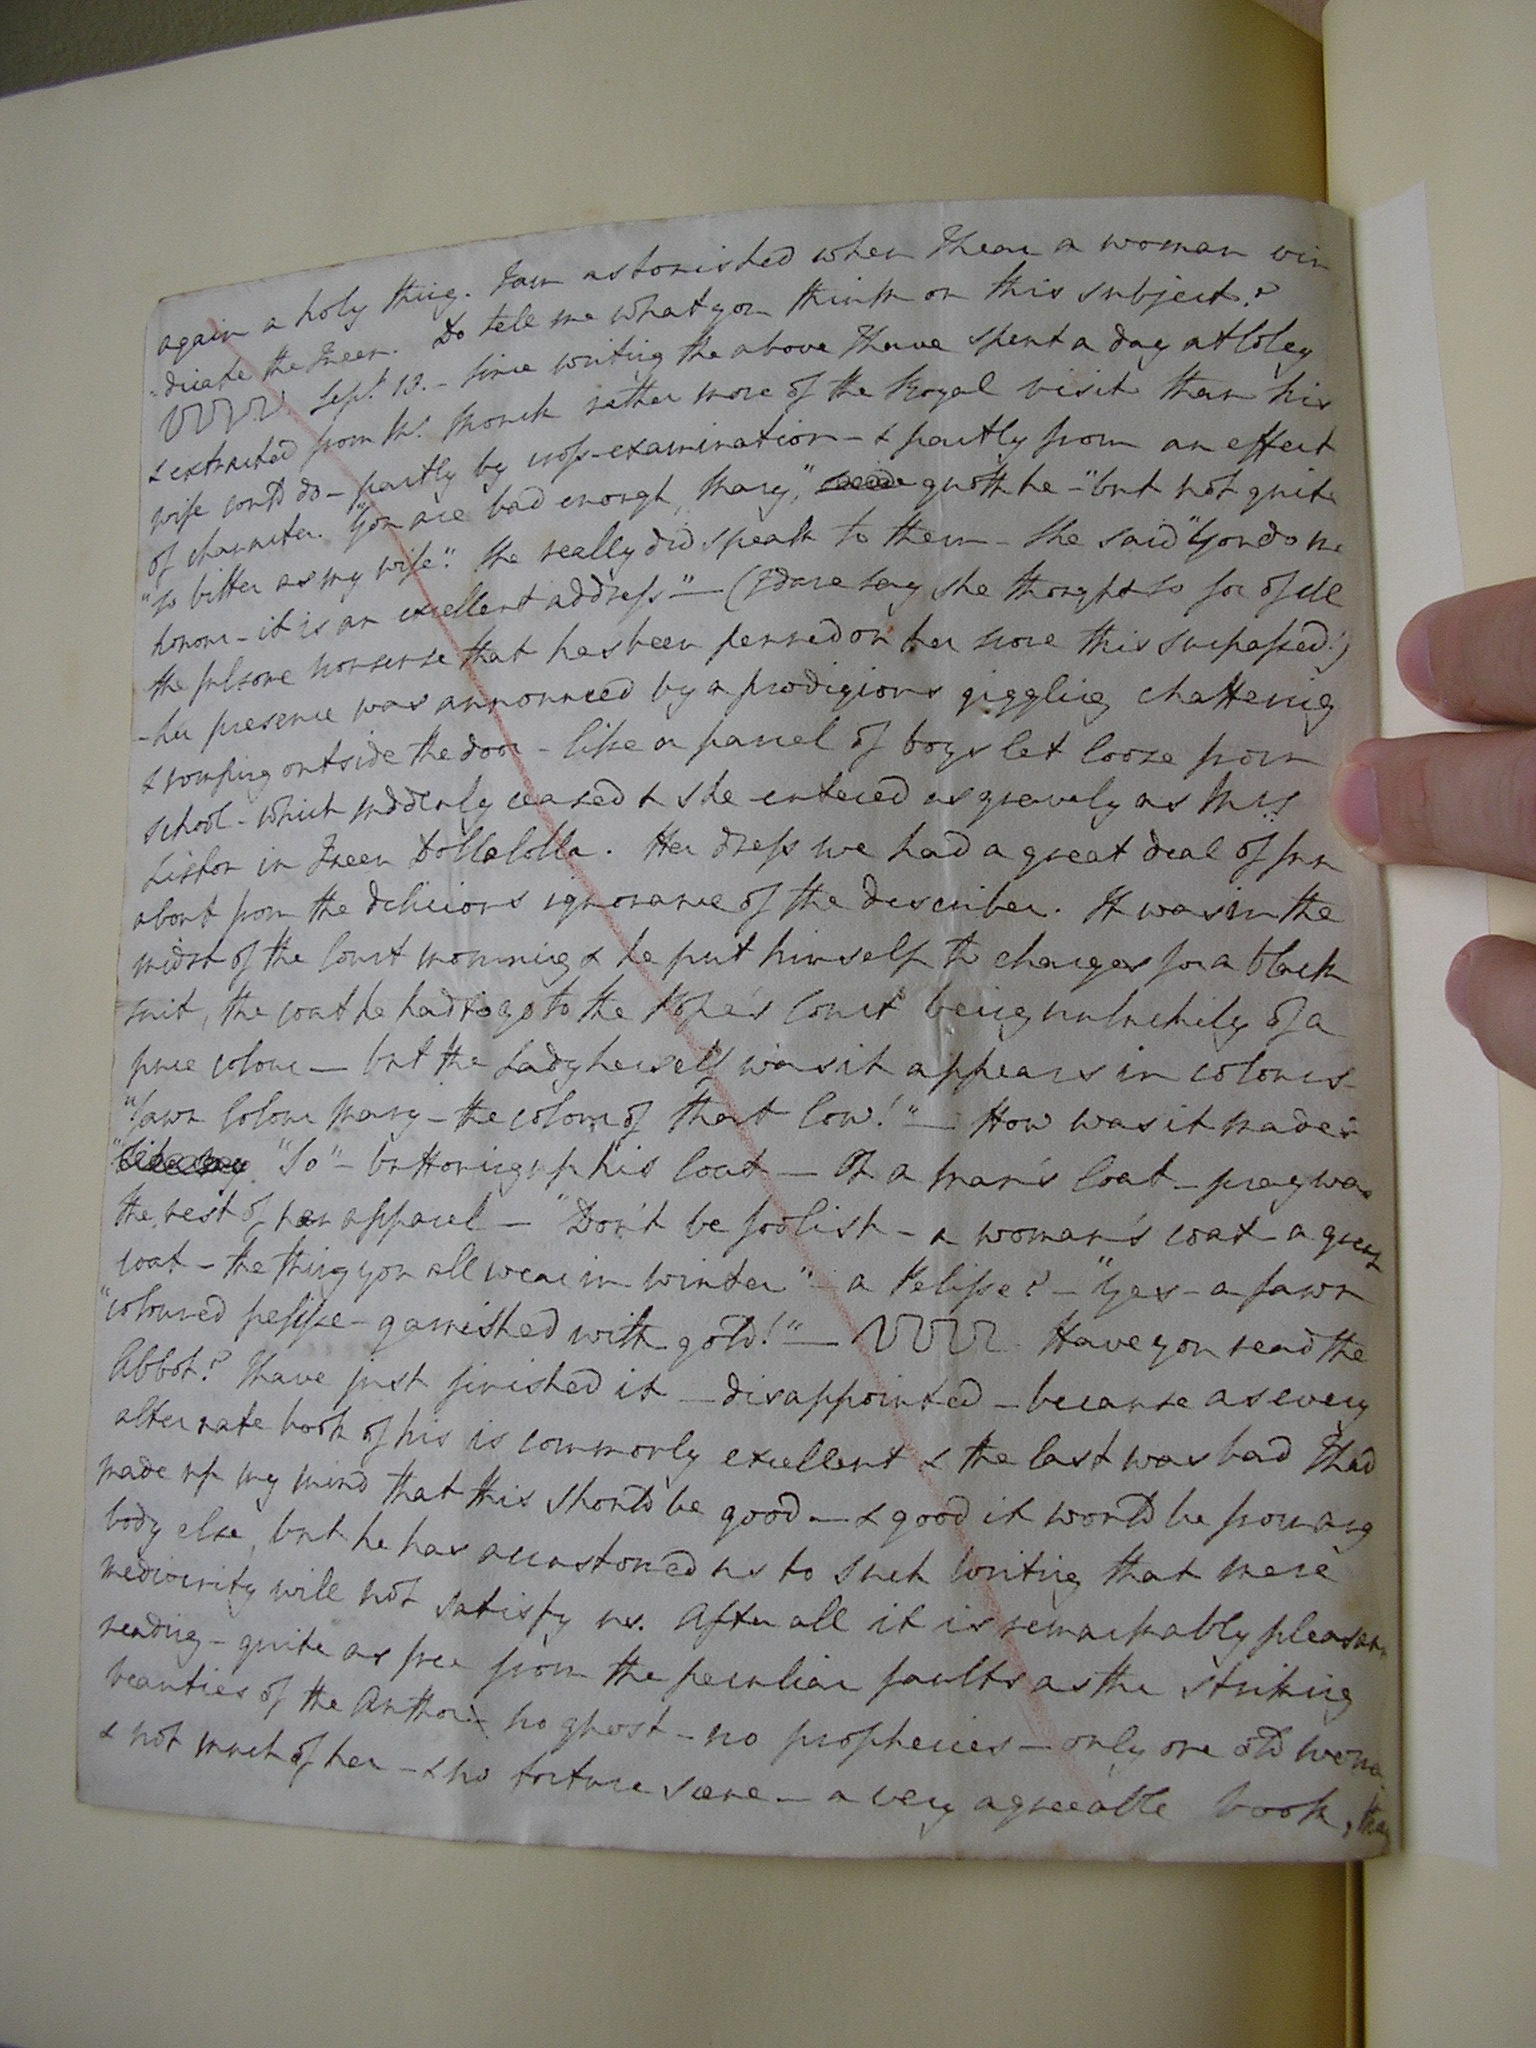 again a holy thing. I am astonished when I hear a woman vin
-dicate the Queen. Do tell me what you think on this subject?
Sept. 12. - Since writing the above I have spent a day at Coley
& extracted from Mr. Monck rather more of the Royal visit than his
wife could do - partly by cross-examination - & partly from an effect
of character. "You are bad enough, Mary," said quoth he - "but not quite
"so bitter as my wife". She really did speak to them - She said "You do me
honour - it is an excellent address" - (I dare say she thought so for of all
the fulsome nonsense that has been penned on her none this surpassed!)
- her presence was announced by a prodigious giggling chattering
& romping outside the door - like a parcel of boys let loose from
school - which suddenly ceased & she entered as gravely as Mrs.
Liston in Queen Dollalolla. Her dress we had a great deal of fun
about from the delicious ignorance of the describer. It was in the
midst of the Court mourning & he put himself to charges for a black
suit, the coat he had to go to the Pope's Court being unluckily of a
puce colour - but the Lady herself was it appears in colours -
"Fawn Colour Mary - the colour of that Cow!" - How was it made?
"So" - buttoning up his Coat - Of a man's Coat - pray was
the rest of her apparel - "Don't be foolish - a woman's coat - a great
coat - the thing you all wear in winter" - a Pelisse? - "Yes - a fawn
"coloured pelisse - garnished with gold!" - Have you read the
Abbot? I have just finished it - disappointed - because as every
alternate book of his is commonly excellent & the last was bad I had
made up my mind that this should be good - & good it would be from any
body else, but he has accustomed us to such writing that mere
mediocrity will not satisfy us. After all it is remarkably pleasant
reading - quite as free from the peculiar faults as the striking
beauties of the Author no ghost - no prophecies - only one old woman
& not much of her - & no torture scene - a very agreeable book,